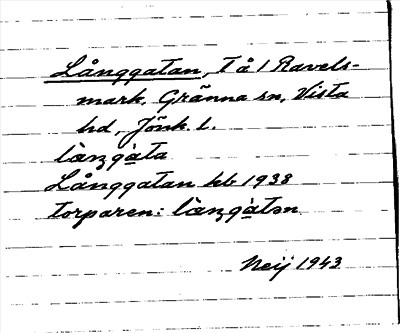 Långgatan, Tå 1 Ravels-
mark, Gränna sn, Vista
hd, Jönk. l.
làŋgàta
Långgatan kb 1938
torparen: làŋgàtən
Neij 1943